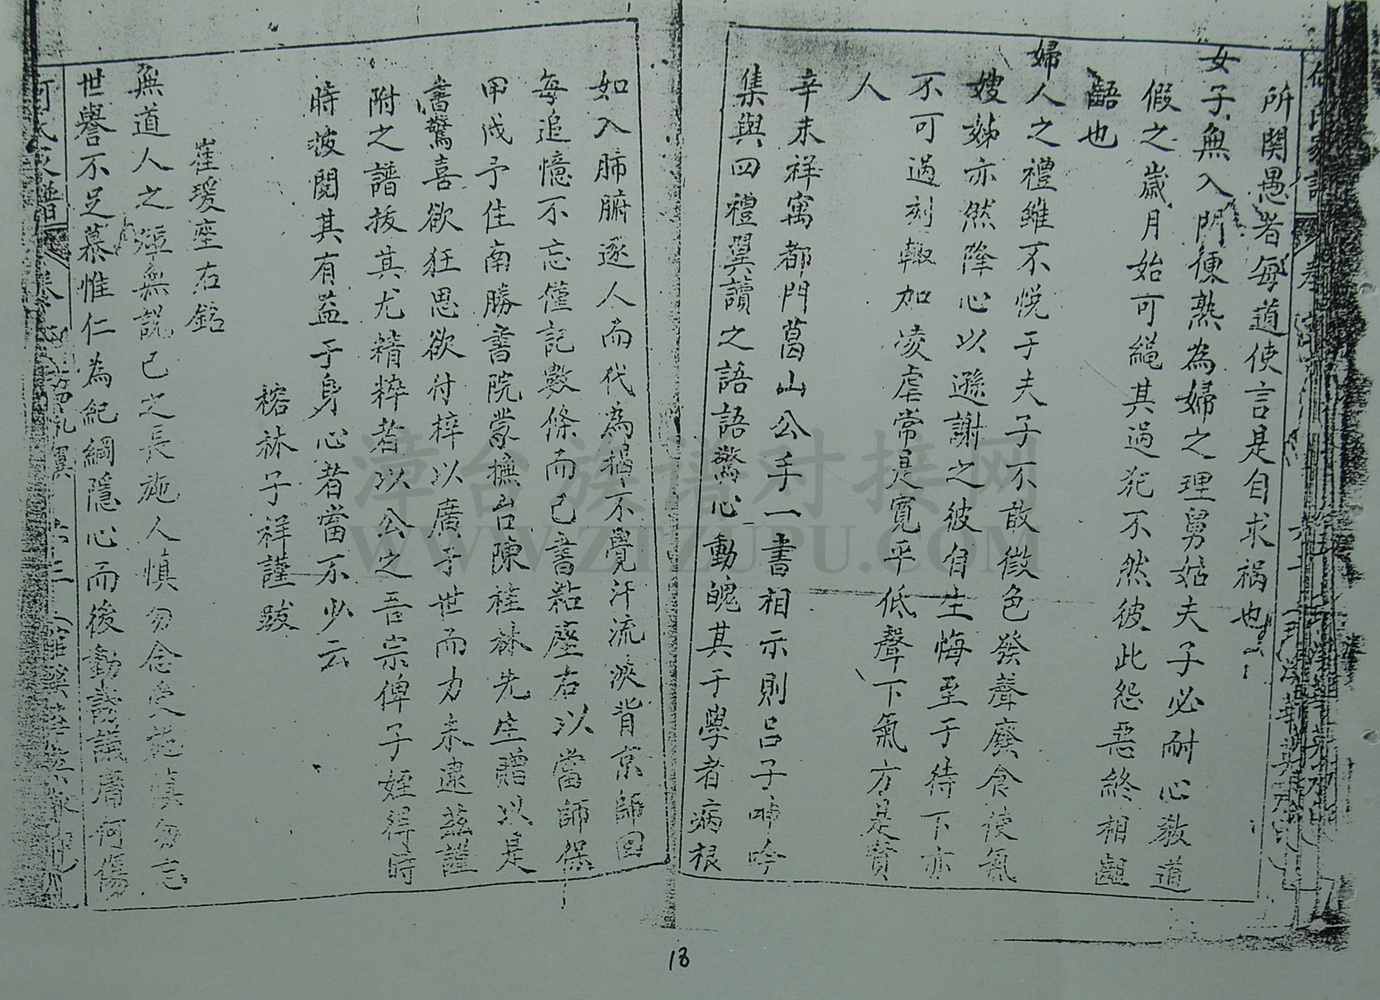 所関愚者每道使言是自求禍也
女子無入門便熟為婦之理舅姑夫子必耐心教道
假之歲月始可繩其過犯不然彼此怨惡終相齟
齬也
婦人之禮雖不悅于夫子不敢傲色發聲廢食使氣
嫂娣亦然降心以遜謝之彼自生悔至于待下亦
不可過刻輙加凌虐常是寬平低聲下氣方是賢
人
辛未祥寓都門葛山公手一書相示則呂子呻吟
集與四禮翼讀之語語驚心動魄其于學者病根
如入肺腑逐人而代為揭不覺汗流浹背京師回
每追憶不忘僅記數條而已書粘座右以當師保
甲戌予住南勝書院蒙撫台陳桂林先生贈以是
書驚喜欲狂思欲付梓以廣于世而力未逮茲謹
附之譜拔其尤精粹者以公之吾宗俾子姪得時
時披閱其有益于身心者當不少云
榕林子祥謹跋
崔瑗座右銘
無道人之短無說己之長施人慎勿念受施慎勿忘
世譽不足慕惟仁為紀綱隱心而後動謗議庸何傷
漳台族譜对接网
WWW.ZTZUPU.COM
18